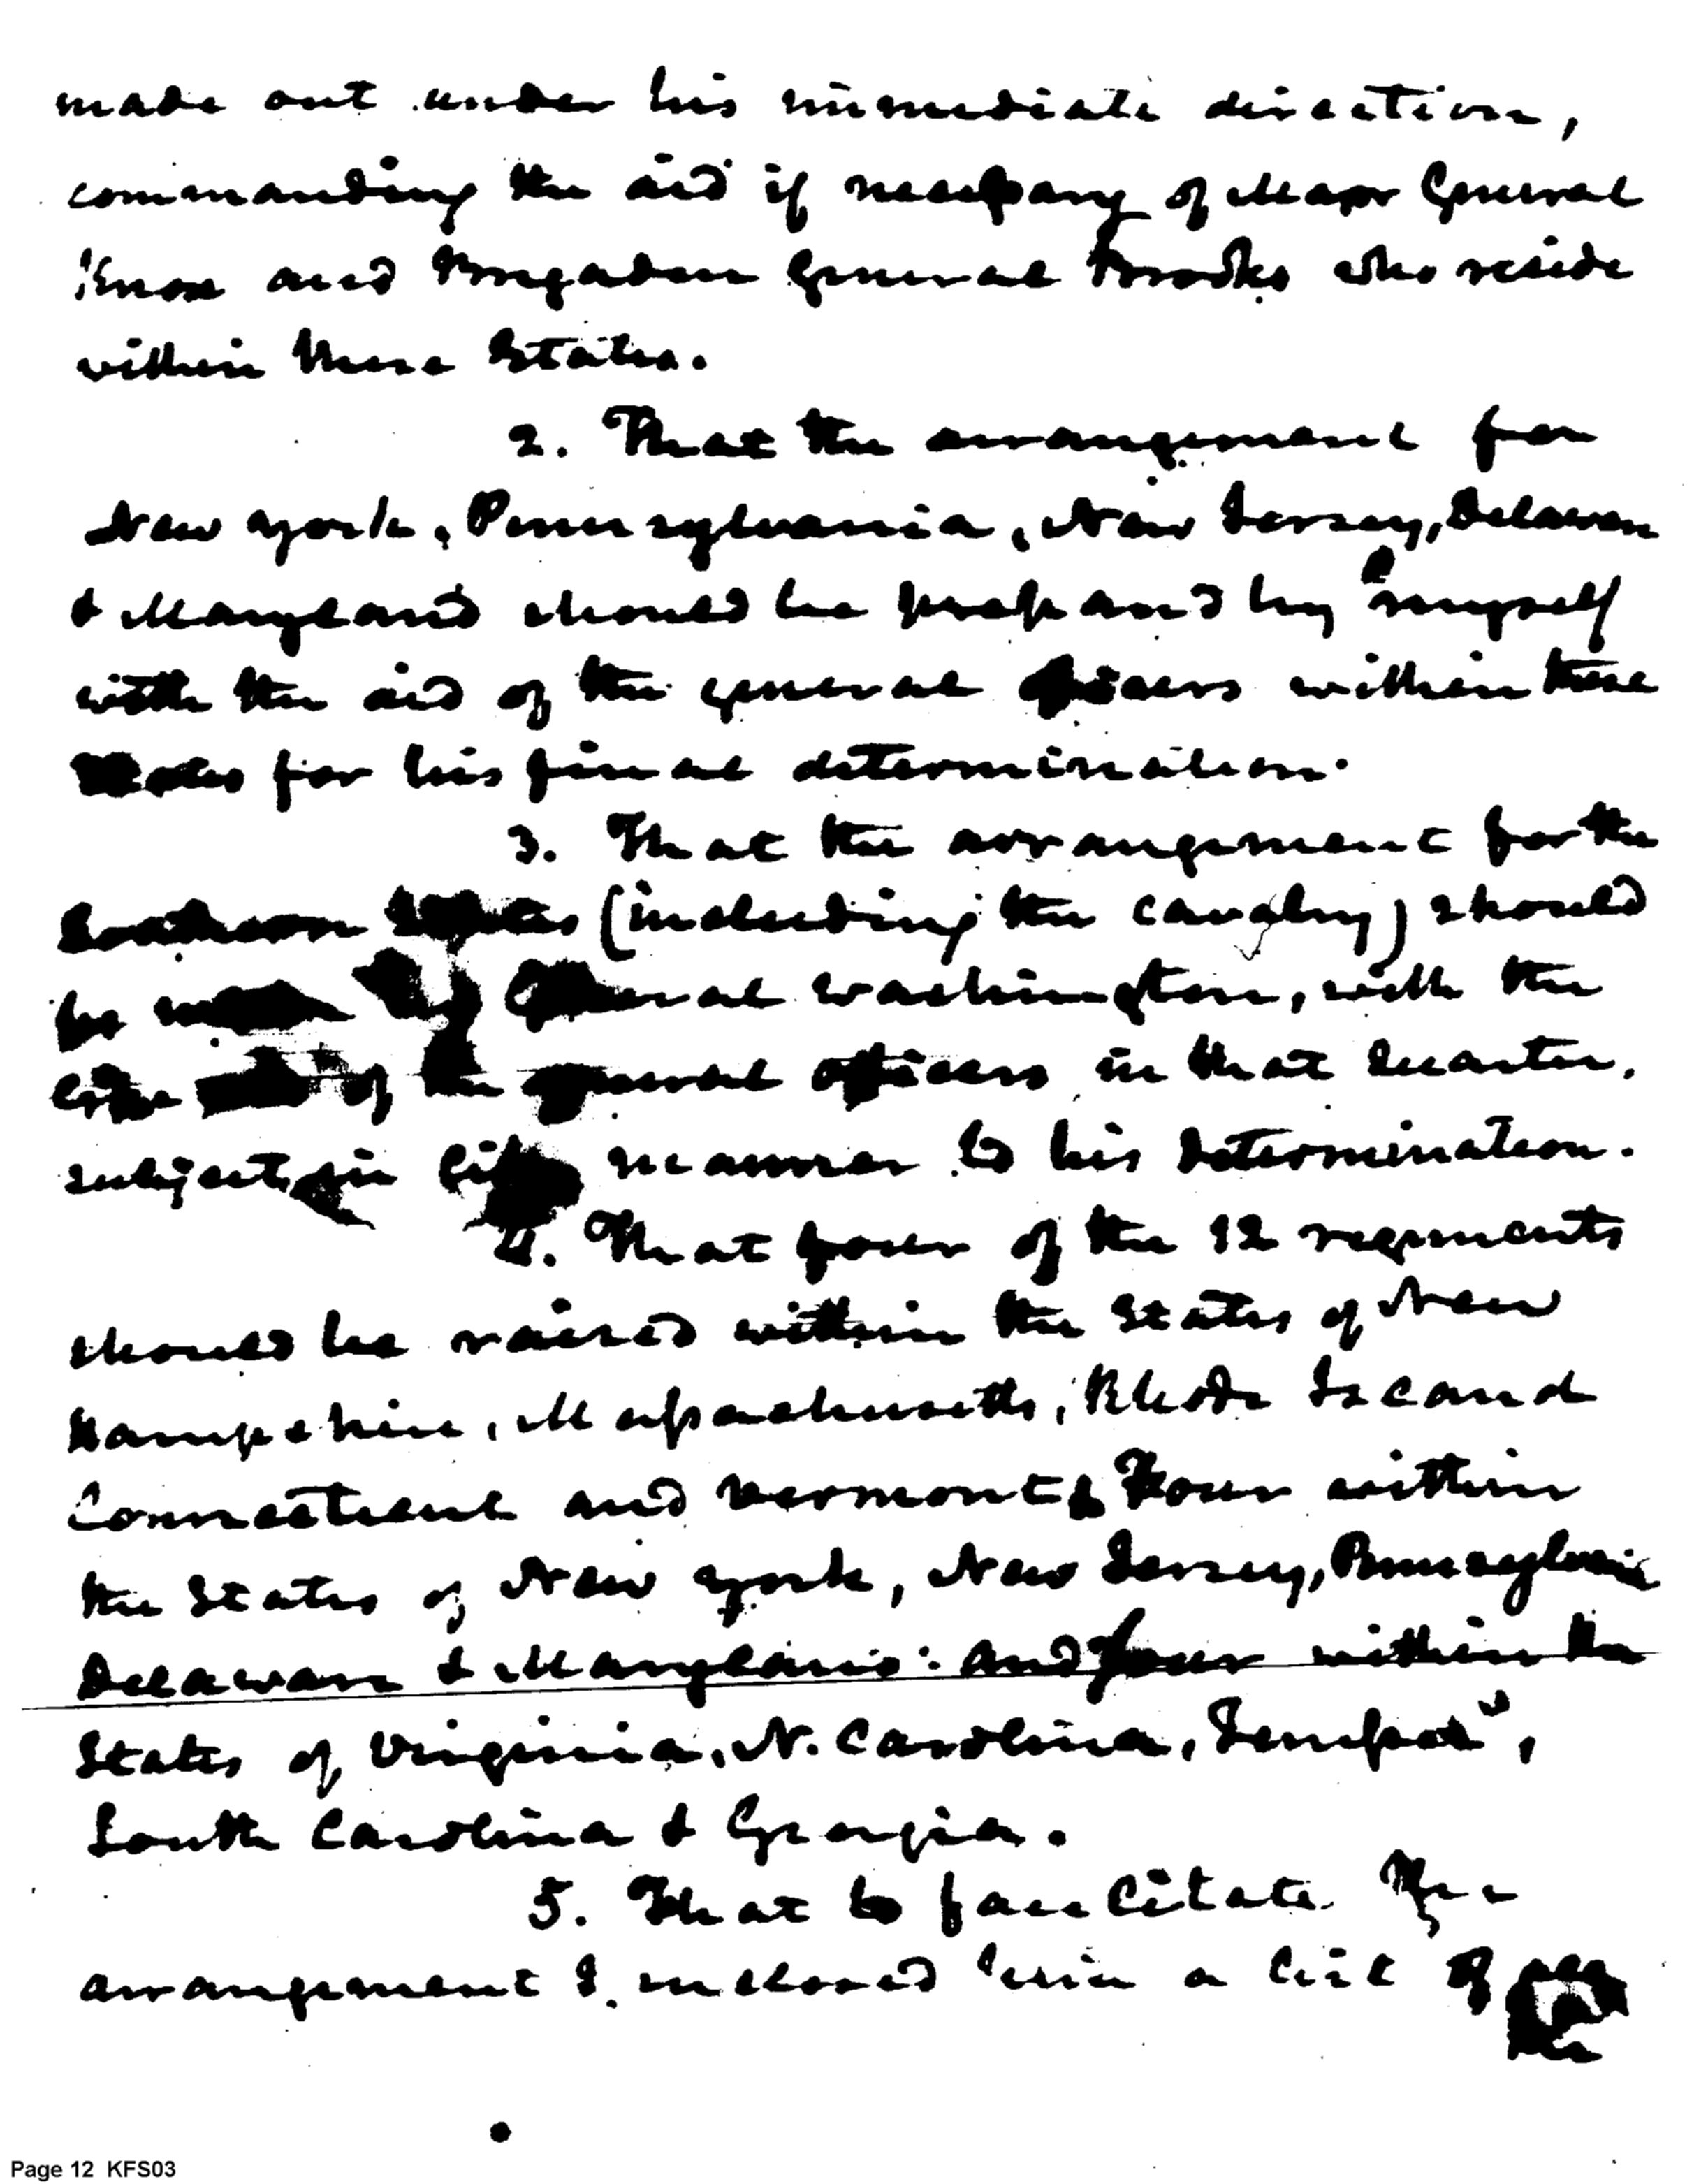 made out under his immediate direction,
commanding the aid if necessary of Major General
Knox and Brigadier General Brooks who reside
within those States.
2. That the arrangement for
New York, Pennsylvania, New Jersey, Delaware
& Maryland should be prepared by myself
with the aid of the general officers within those
for his final determination.
3. That the arrangement for the
Southern States (including the cavalry) should
be by General Washington, with the
like aid of the general officers in that Quarter,
subject, in like manner to his determination.
4. That four of the 12 regiments
should be raised within the States of New
Hampshire, Massachusetts, Rhode Island
Connecticut and Vermont; Four within
the States of New York, New Jersey, Pennsylvania
Delaware & Maryland: and four within the
States of Virginia, N. Carolina, Tennessee,
South Carolina & Georgia.
5. That to facilitate the
arrangement I inclosed him a list of all
the
Page 12 KFS03